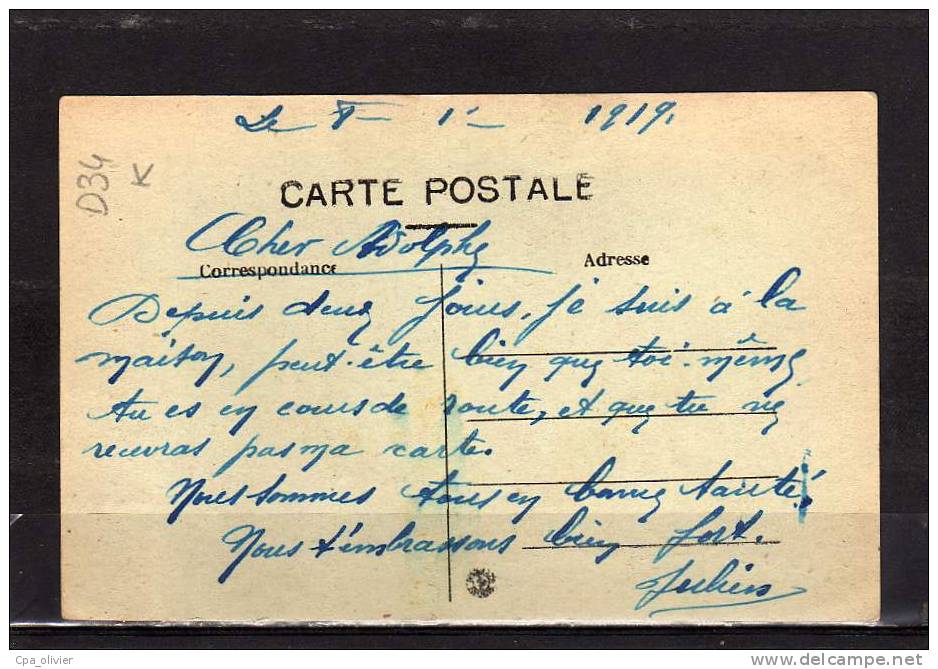 Le 8 - 1 - 1919.
D34
K
CARTE POSTALE
Cher Adolphe
Correspondance
Adresse
Depuis deux jours, je suis à la
maison, peut-être bien que toi-même
tu es en cours de route, et que tu ne
recevras pas ma carte.
Nous sommes tous en bonne santé.
Nous t'embrassons bien fort.
Julien
Cpa_olivier
www.delcampe.net